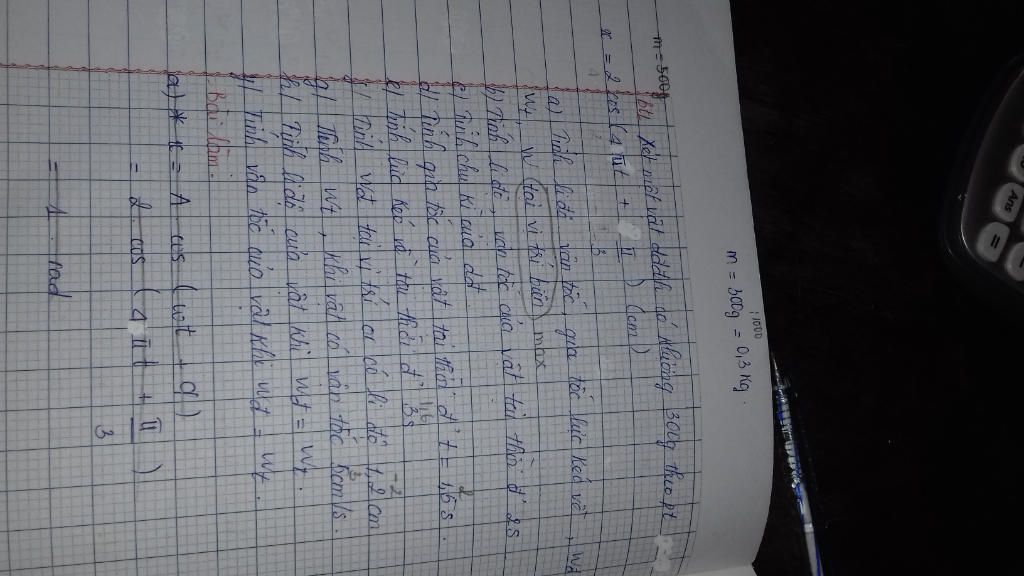 : 1000
m = 300g = 0,3 kg.
m = 300g
Xét một vật dđđh có khối lượng 300g theo pt
x = 2 cos (4πt + π/3) (cm)
a) Tính li độ, vận tốc, gia tốc lúc kéo về, wđ
wt, w tại vị trí biên max
b) Tính li độ, vận tốc của vật tại thời đ' 2s
c) Tính chu kì của dđ
d) Tính gia tốc của vật tại thời đ' t = 1,6 s.
e) Tính lúc kéo về tại thời đ' 3s
f) Tính wđ tại vị trí có li độ 1,2 cm
g) Tính wt, khi vật có vận tốc 5cm/s.
h) Tính li độ của vật khi wđ = wt.
y) Tính vận tốc của vật khi wđ = wt.
Bài làm:
a) * x = A cos (ωt + φ)
= 2 cos (4πt + π/3)
= 1 rad